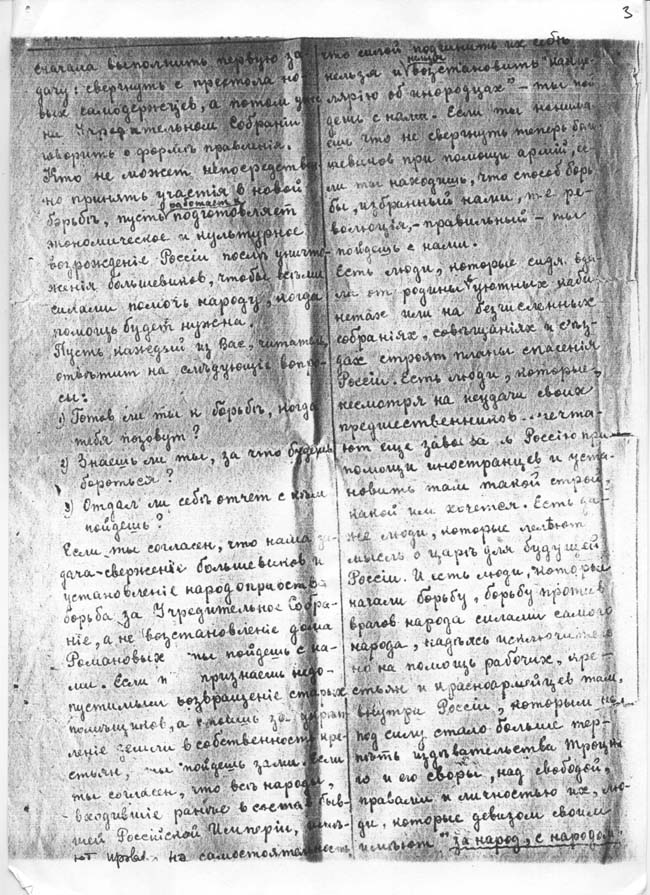 3
сначала выполнить первую за-
дачу: свергнуть с престола но-
вых самодержцев, а потом уже
на Учредительном Собраніи
говорить о формѣ правленія.
Кто не может непосредствен-
но принять участія в новой
борьбѣ, пусть работает и подготовляет
экономическое и культурное
возрожденіе Россіи послѣ уничто-
женія большевиков, чтобы всѣми
силами помочь народу, когда
помощь будет нужна.
Пусть каждый из Вас, читатели,
отвѣтит на слѣдующіе вопро-
сы:
1) Готов ли ты к борьбѣ, когда
тебя позовут?
2) Знаешь ли ты, за что будешь
бороться?
3) Отдал ли себѣ отчет с кѣм
пойдешь?
Если ты согласен, что наша за-
дача-сверженіе большевиков и
установленіе народоправства
борьба за Учредительное Собра-
ніе, а не возстановленіе дома
Романовых ты пойдешь с на-
ми. Если признаешь недо-
пустимым возвращеніе старых
помѣщиков, а стоишь за укрѣп-
леніе земли в собственность кре-
стьян, ты пойдешь с нами. Если
ты согласен, что всѣ народы,
входившіе раньше в состав быв-
шей Россійской Имперіи, имѣ-
ют право на самостоятельность
что силой подчинить их себѣ
нельзя и нельзя возстановить "канце-
лярію об инородцах" - ты пой
дешь с нами. Если ты понима-
ешь что не свергнуть теперь боль-
шевиков при помощи армій, ес-
ли ты находишь, что способ борь
бы, избранный нами, т.е. ре-
волюція, - правильный - ты
пойдешь с нами.
Есть люди, которые сидя вда-
ли от родины в уютных каби-
нетах или на безчисленных
собраніях, совѣщаніях и съѣз-
дах строят планы спасенія
Россіи. Есть люди, которые,
несмотря на неудачи своих
предшественников мечта-
ют еще завоевать Россію при
помощи иностранцев и уста-
новить там такой строй,
какой им хочется. Есть да-
же люди, которые лелѣют
мысль о царѣ для будущей
Россіи. И есть люди, которые
начали борьбу, борьбу против
врагов народа силами самого
народа, надѣясь исключитель-
но на помощь рабочих, кре-
стьян и красноармейцев там,
внутри Россіи, которым не
под силу стало больше тер-
пѣть издѣвательства Троцка-
го и его своры, над свободой,
правами и личностью их, лю-
ди, которые девизом своим
имѣют "за народ, с народом